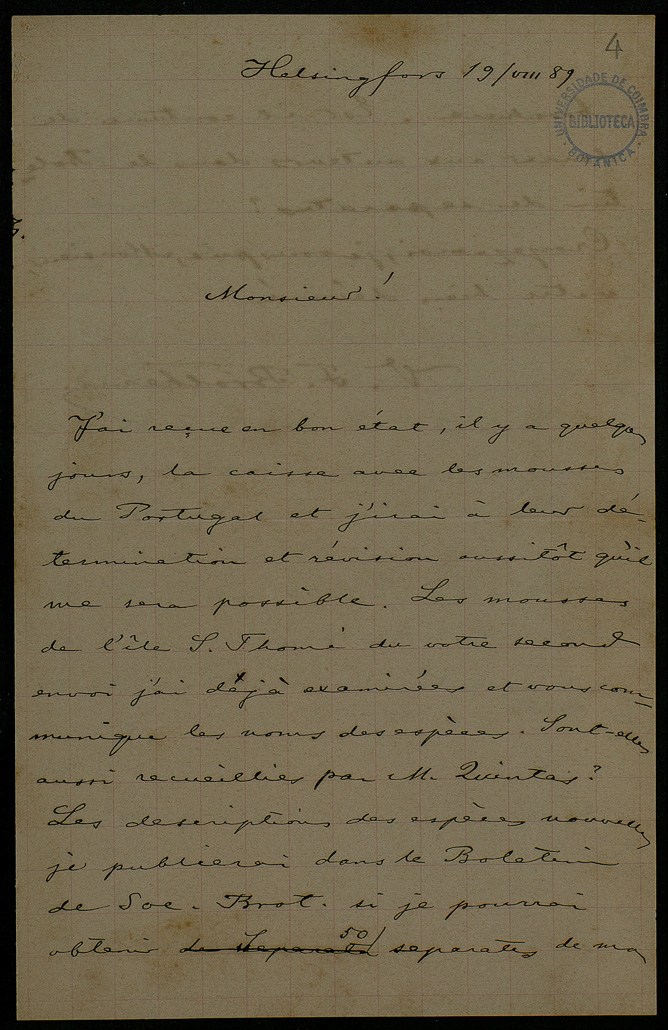 4
Helsingfors 19/VIII 89
UNIVERSIDADE DE COIMBRA
BIBLIOTECA
BOTANICA
Monsieur!
J'ai reçue en bon état, il y a quelques
jours, la caisse avec les mousses
du Portugal et j'irai à leur dé-
termination et révision aussitôt qu'il
me sera possible. Les mousses
de l'île S. Thomé du votre second
envoi j'ai déjà examinées et vous com-
munique les noms des espèces. Sont-elles
aussi recueillies par M. Quintas?
Les descriptions des espèces nouvelles
je publierai dans le Boletin
de Soc. Brot. si je pourrai
50
obtenir de Separata separates de ma